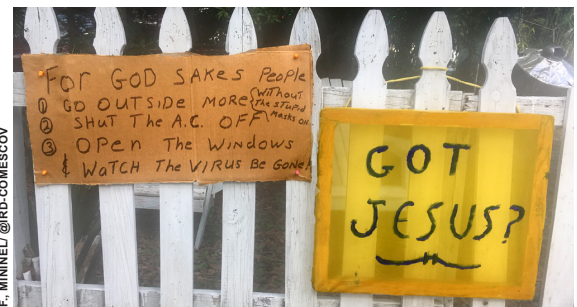 FOR GOD SAKES PeoPLe
① GO OUTSIDe MORe (Without The STUPiD Masks ON.
② SHUT The A.C. OFF
③ OPen The WiNDOWS
& WaTCH The VIRUS Be GONe!
GOT
JESUS?
F., MININEL/ @IRD-COMESCOV